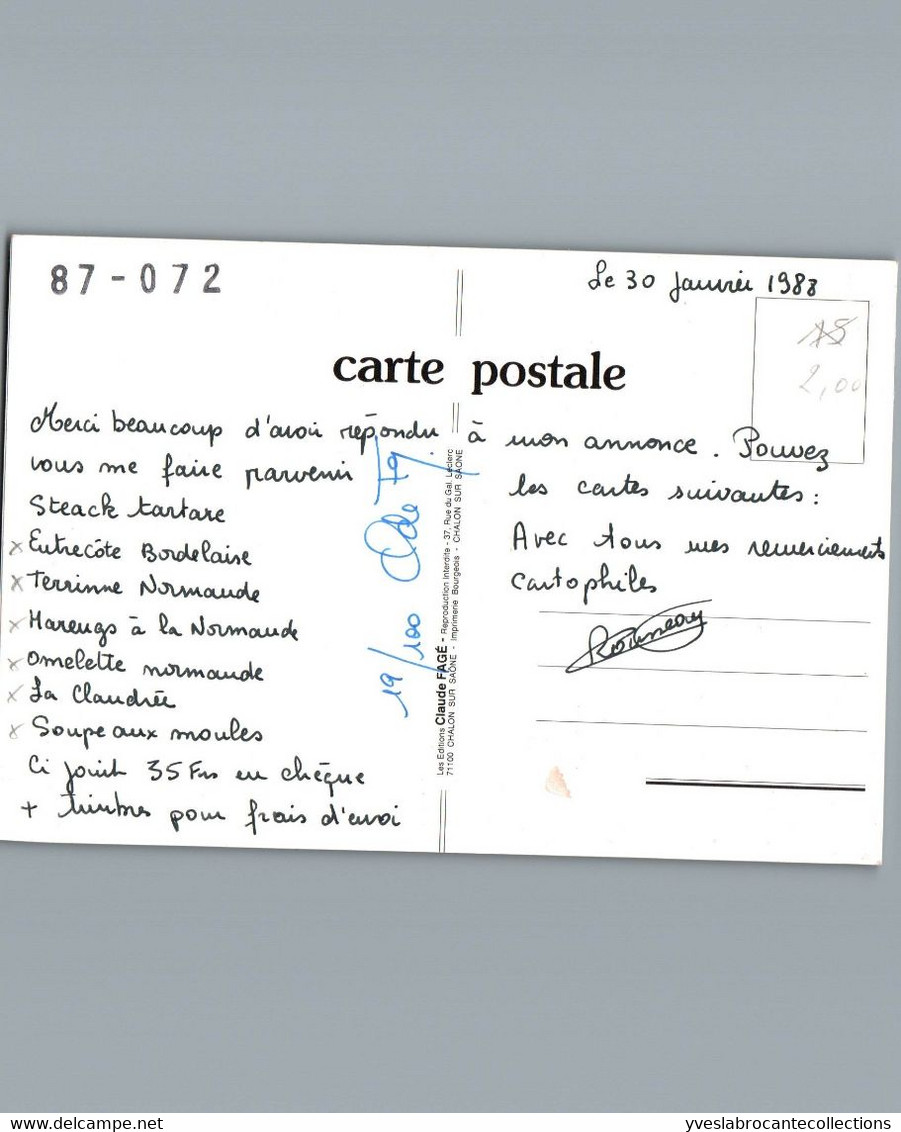 87-072
Le 30 Janvier 1988
carte postale
2,00
Merci beaucoup d'avoir répondu à mon annonce. Pouvez
vous me faire parvenir les cartes suivantes :
Steack tartare
x Entrecôte Bordelaise
x Terrinne Normande
x Harengs à la Normande
x Omelette normande
x La Claudrée
x Soupe aux moules
Ci joint 35 Frs en chèque
+ timbres pour frais d'envoi
Avec tous mes remerciements
cartophiles
19/100
Les Editions Claude FAGÉ - Reproduction Interdite - 37, Rue du Gal. Leclerc
71100 CHALON SUR SAÔNE - Imprimerie Bourgeois - CHALON SUR SAÔNE
delcampe.net
yveslabrocantecollections